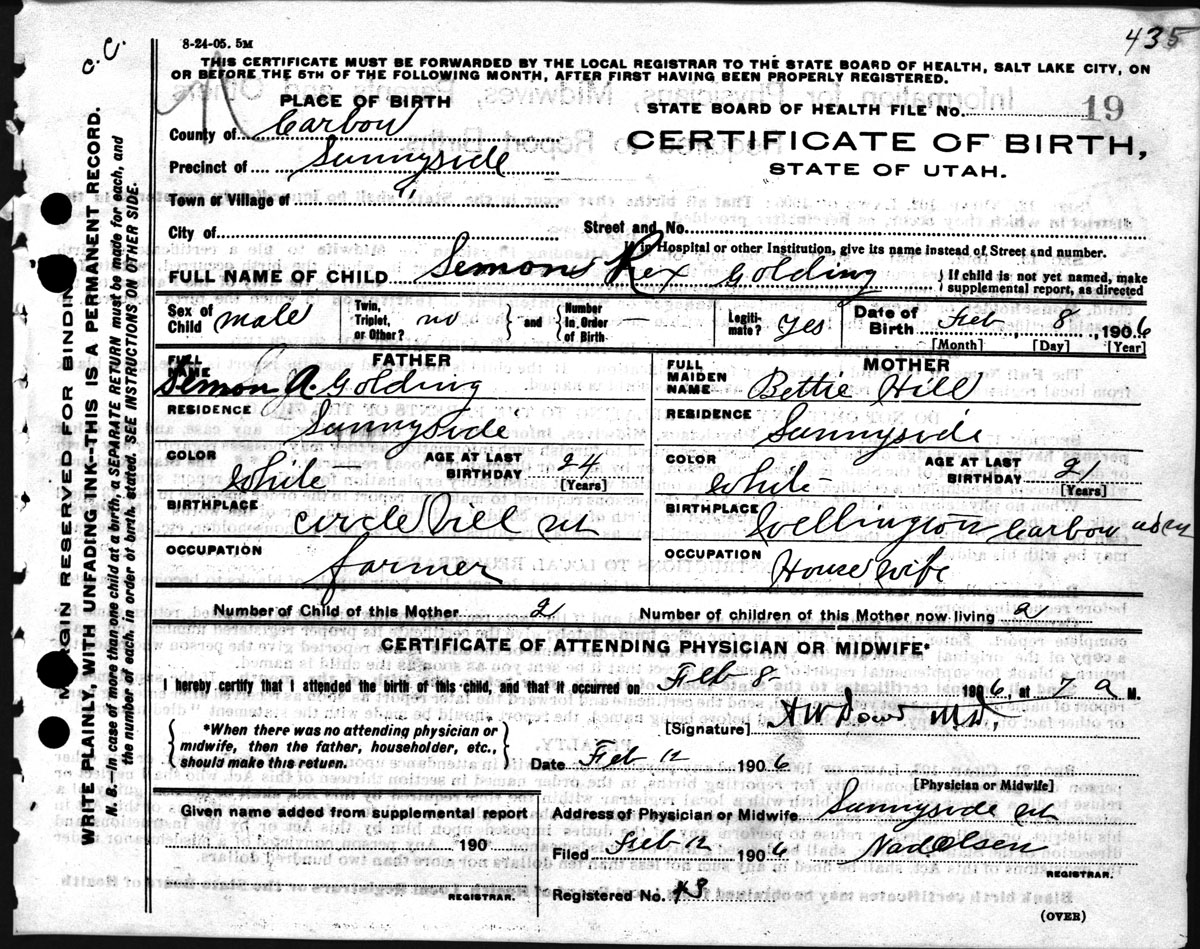 435
c.C.
8-24-05. 5M
THIS CERTIFICATE MUST BE FORWARDED BY THE LOCAL REGISTRAR TO THE STATE BOARD OF HEALTH, SALT LAKE CITY, ON
OR BEFORE THE 5TH OF THE FOLLOWING MONTH, AFTER FIRST HAVING BEEN PROPERLY REGISTERED.
PLACE OF BIRTH
STATE BOARD OF HEALTH FILE No. 19
County of Carbon
CERTIFICATE OF BIRTH,
Precinct of Sunnyside
STATE OF UTAH.
Town or Village of "
City of Street and No.
If in Hospital or other Institution, give its name instead of Street and number.
FULL NAME OF CHILD Semons Rex Golding { If child is not yet named, make supplemental report, as directed
Sex of Child male Twin, Triplet, or Other? no } and { Number in Order of Birth — Legiti-mate? Yes Date of Birth Feb 8, 1906
[Month] [Day] [Year]
FATHER MOTHER
FULL NAME Semon A. Golding FULL MAIDEN NAME Bettie Hill
RESIDENCE Sunnyside RESIDENCE Sunnyside
COLOR White AGE AT LAST BIRTHDAY 24 [Years] COLOR White AGE AT LAST BIRTHDAY 24 [Years]
BIRTHPLACE Circleville ut BIRTHPLACE Wellington Carbon
OCCUPATION farmer OCCUPATION Housewife
Number of Child of this Mother 2 Number of children of this Mother now living 2
CERTIFICATE OF ATTENDING PHYSICIAN OR MIDWIFE*
I hereby certify that I attended the birth of this child, and that it occurred on Feb 8- 1906, at 7 a M.
{ *When there was no attending physician or midwife, then the father, householder, etc., should make this return. }
[Signature] A W Dowd M.D,
Date Feb 12 1906
[Physician or Midwife]
Given name added from supplemental report
Address of Physician or Midwife Sunnyside ut
190
Filed Feb 12 1906 Nad Olsen
REGISTRAR.
REGISTRAR.
Registered No. 43
(OVER)
MARGIN RESERVED FOR BINDING
WRITE PLAINLY, WITH UNFADING INK--THIS IS A PERMANENT RECORD.
N. B. In case of more than one child at a birth, a SEPARATE RETURN must be made for each, and
the number of each, in order of birth, stated. SEE INSTRUCTIONS ON OTHER SIDE.